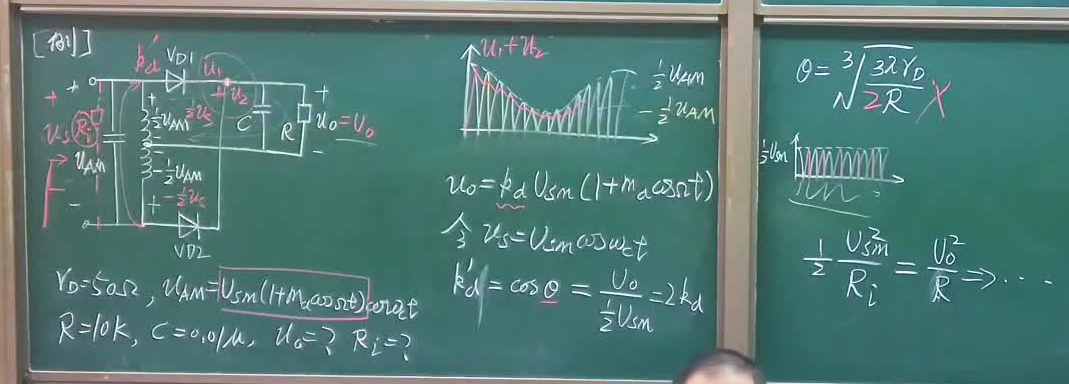 [例]
k'd
VD1
u₁
+ u₂
+ +
½uAM ½us
C
R
u₀ = U₀
us Ri
uAM
-½uAM
-½us
VD2
rD=50Ω, uAM=Usm(1+macosΩt)cosωct
R=10K, C=0.01μ, u₀=? Ri=?
u₁+u₂
½uAM
-½uAM
u₀=kdUsm(1+macosΩt)
令 us=Usmcosωct
k'd=cosθ=U₀/½Usm=2kd
θ=∛(3πrD/2R) X
½Usm
½ Usm²/Ri = U₀²/R ⇒ ....